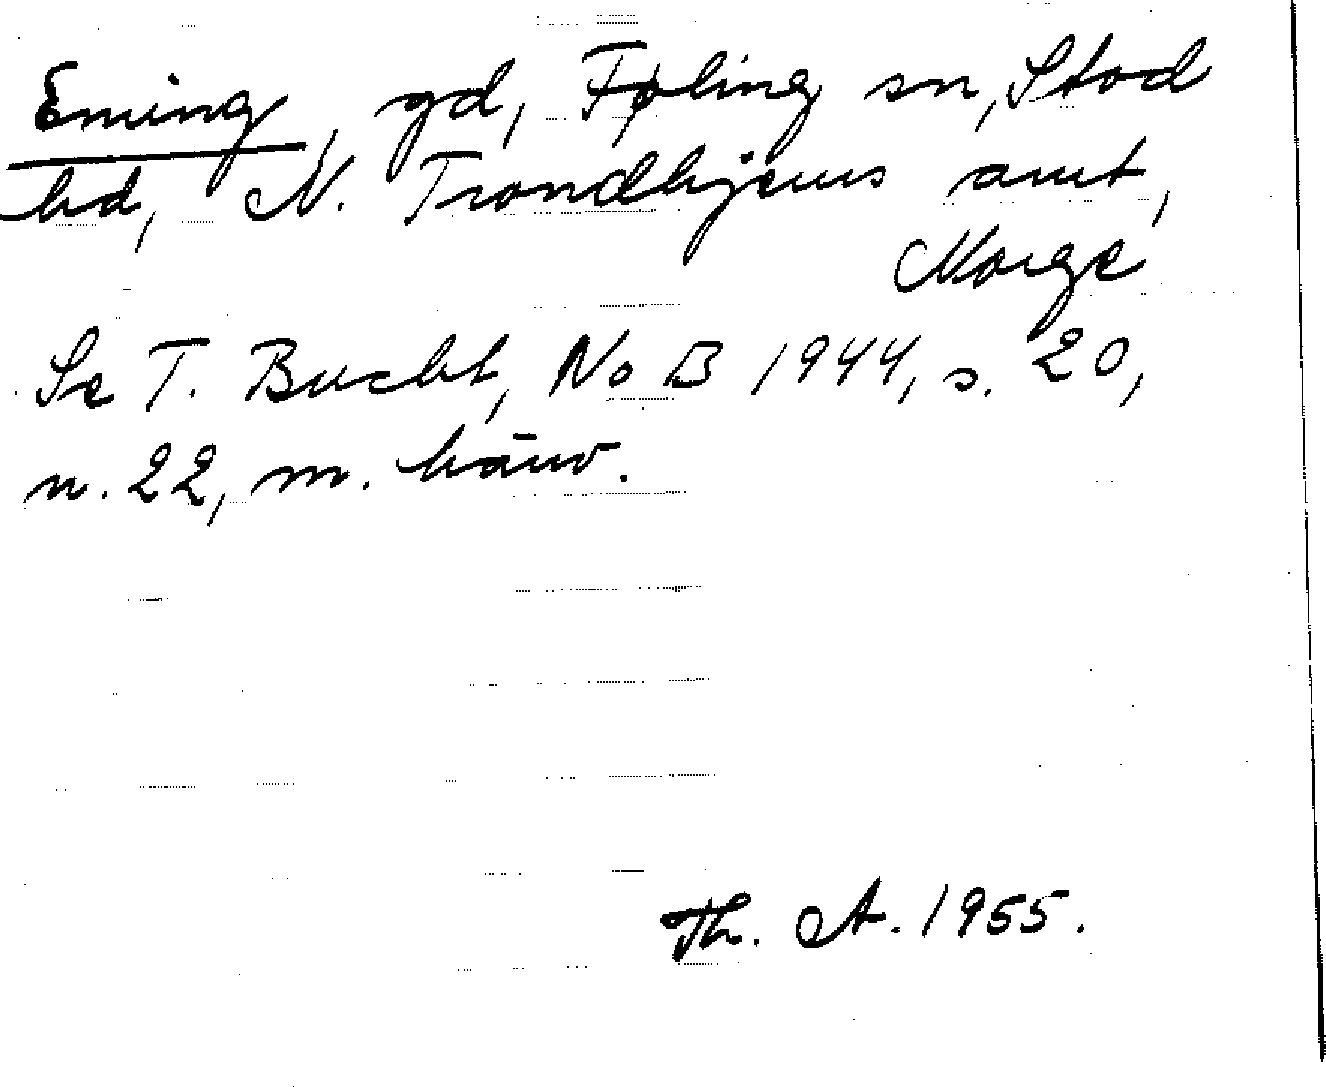 Eming, gd, Følling sn, Stod
hd, N. Trondhjems amt,
Norge
Se T. Bucht, NoB 1944, s. 20,
n. 22, m. hänv.
Th. A. 1955.